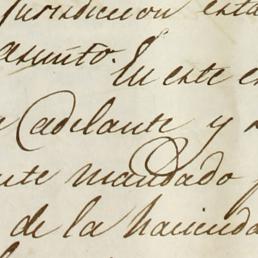 jurisdiccion esta
asunto. En este
adelante y
mandado
de la hacienda